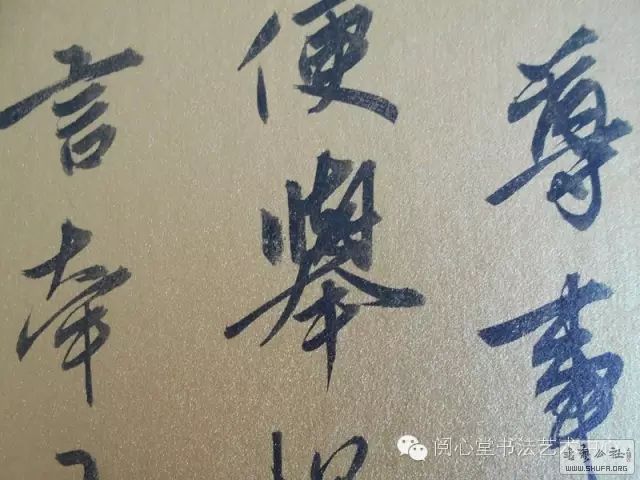 尊事
便舉
言
阅心堂书法艺术
書藝公社
WWW.SHUFA.ORG